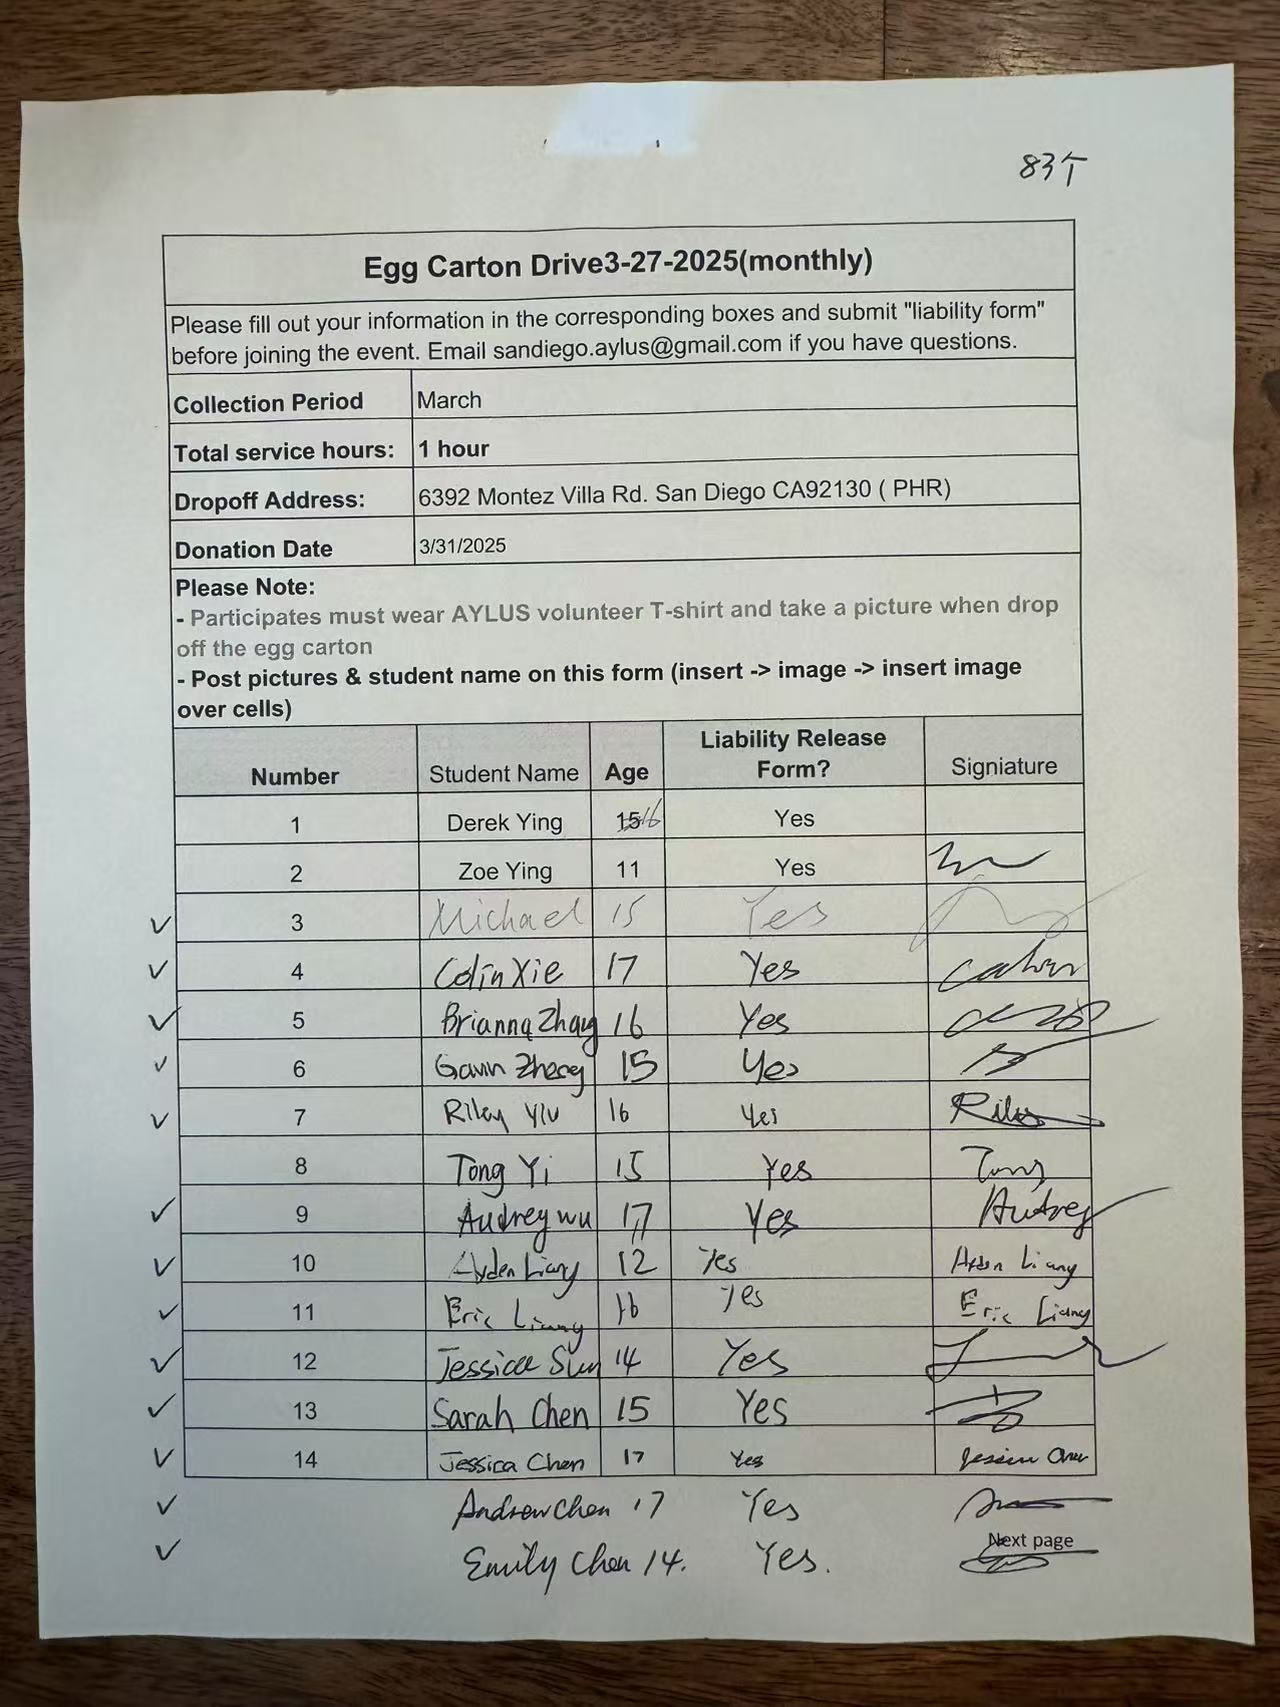 83个
Egg Carton Drive3-27-2025(monthly)
Please fill out your information in the corresponding boxes and submit "liability form"
before joining the event. Email sandiego.aylus@gmail.com if you have questions.
Collection Period March
Total service hours: 1 hour
Dropoff Address: 6392 Montez Villa Rd. San Diego CA92130 ( PHR)
Donation Date 3/31/2025
Please Note:
- Participates must wear AYLUS volunteer T-shirt and take a picture when drop
off the egg carton
- Post pictures & student name on this form (insert -> image -> insert image
over cells)
Number Student Name Age Liability Release Form? Signiature
1 Derek Ying 15 16 Yes
2 Zoe Ying 11 Yes
✓ 3 Michael 15 Yes
✓ 4 Colin Xie 17 Yes
✓ 5 Brianna Zhang 16 Yes
✓ 6 Gavin Zheng 15 Yes
✓ 7 Riley Yiu 16 Yes Riley
8 Tong Yi 15 Yes Tong
✓ 9 Audrey wu 17 Yes Audrey
✓ 10 Ayden Liang 12 Yes Ayden Liang
✓ 11 Eric Liang 16 Yes Eric Liang
✓ 12 Jessica Sun 14 Yes
✓ 13 Sarah Chen 15 Yes
✓ 14 Jessica Chen 17 Yes Jessica Chen
✓ Andrew Chen 17 Yes
Next page
✓ Emily Chen 14. Yes.